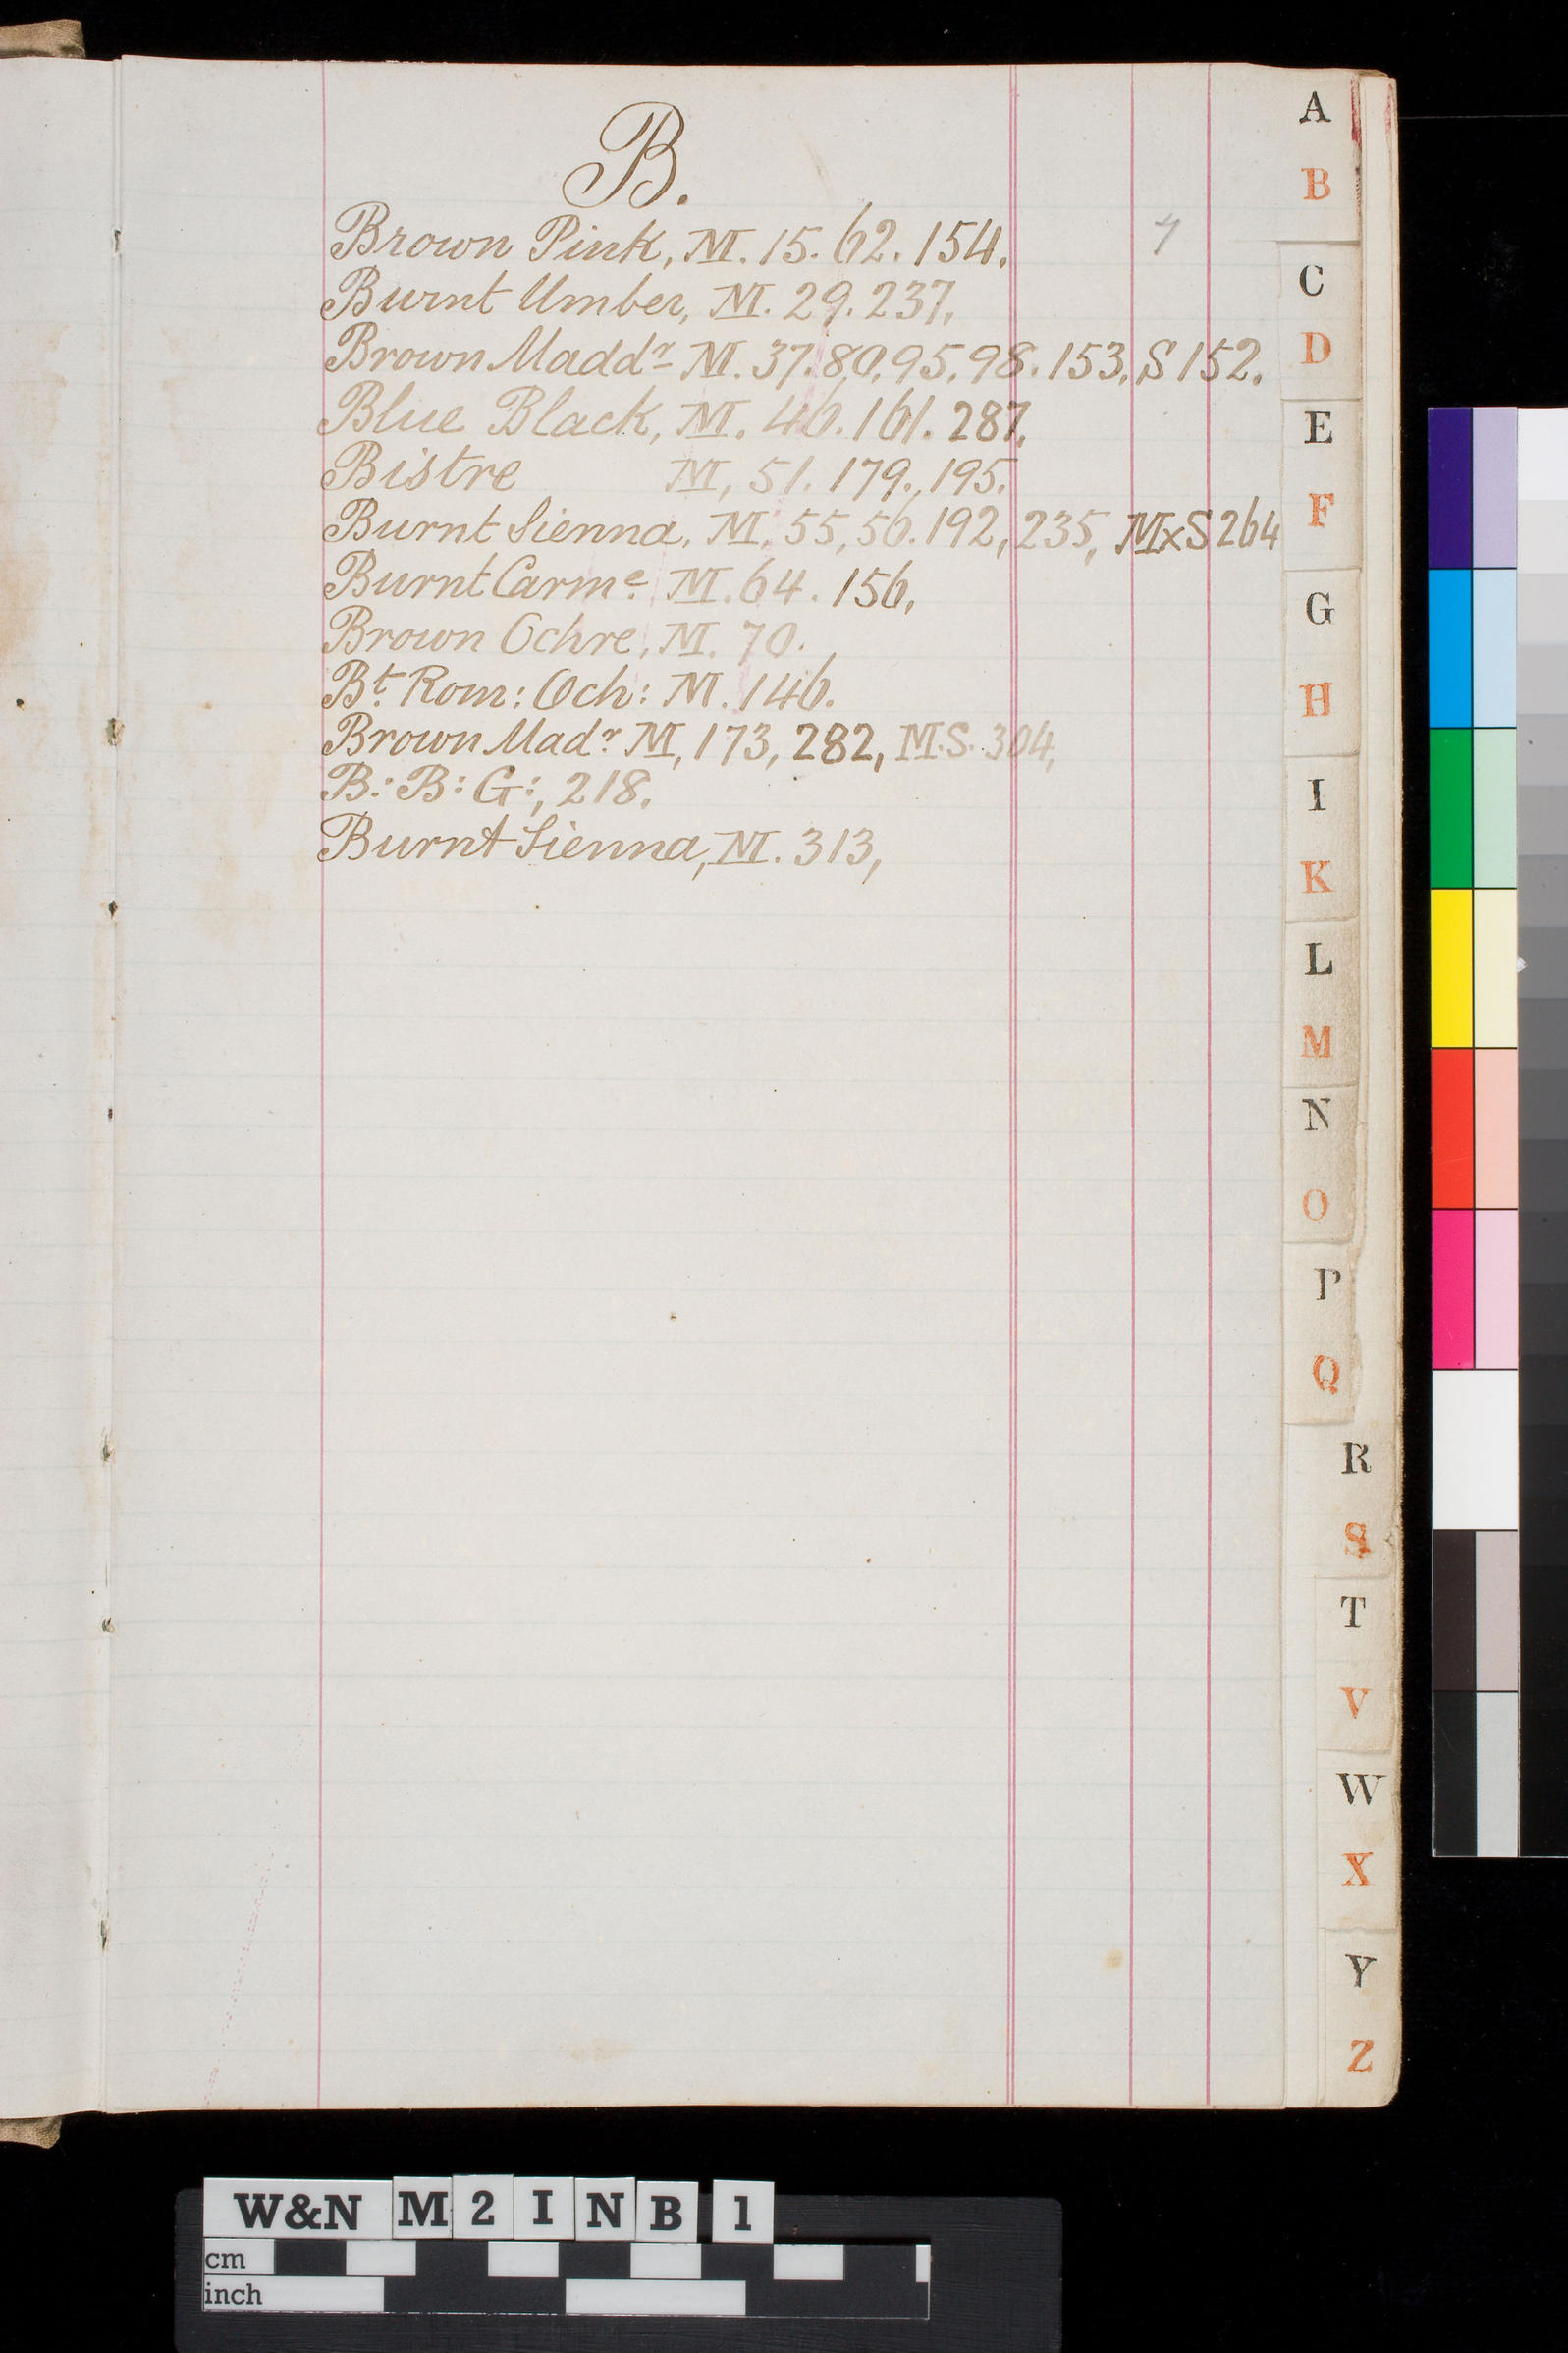 B.
Brown Pink, M. 15. 62. 154.
Burnt Umber, M. 29. 237,
Brown Maddr M. 37. 80, 95, 98. 153, S 152.
Blue Black, M. 46. 161. 287,
Bistre M, 51. 179., 195.
Burnt Sienna, M, 55, 56. 192, 235, MxS 264
Burnt Carme. M. 64. 156,
Brown Ochre, M. 70.
Bt. Rom: Och: M. 146.
Brown Madr. M, 173, 282, M.S. 304,
B: B: G:, 218.
Burnt Sienna, M. 313,
A
B
C
D
E
F
G
H
I
K
L
M
N
O
P
Q
R
S
T
V
W
X
Y
Z
W&N M 2 I N B 1
cm
inch